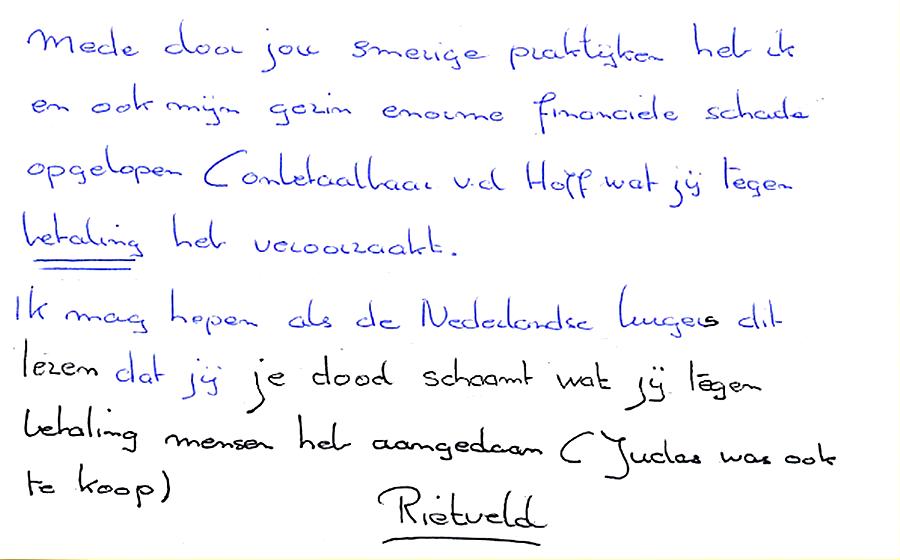 Mede door jou smerige praktijken heb ik
en ook mijn gezin enorme financiele schade
opgelopen (onbetaalbaar v.d Hoff wat jij tegen
betaling heb veroorzaakt.
Ik mag hopen als de Nederlandse burgers dit
lezen dat jij je dood schaamt wat jij tegen
betaling mensen heb aangedaan (Judas was ook
te koop)
Rietveld